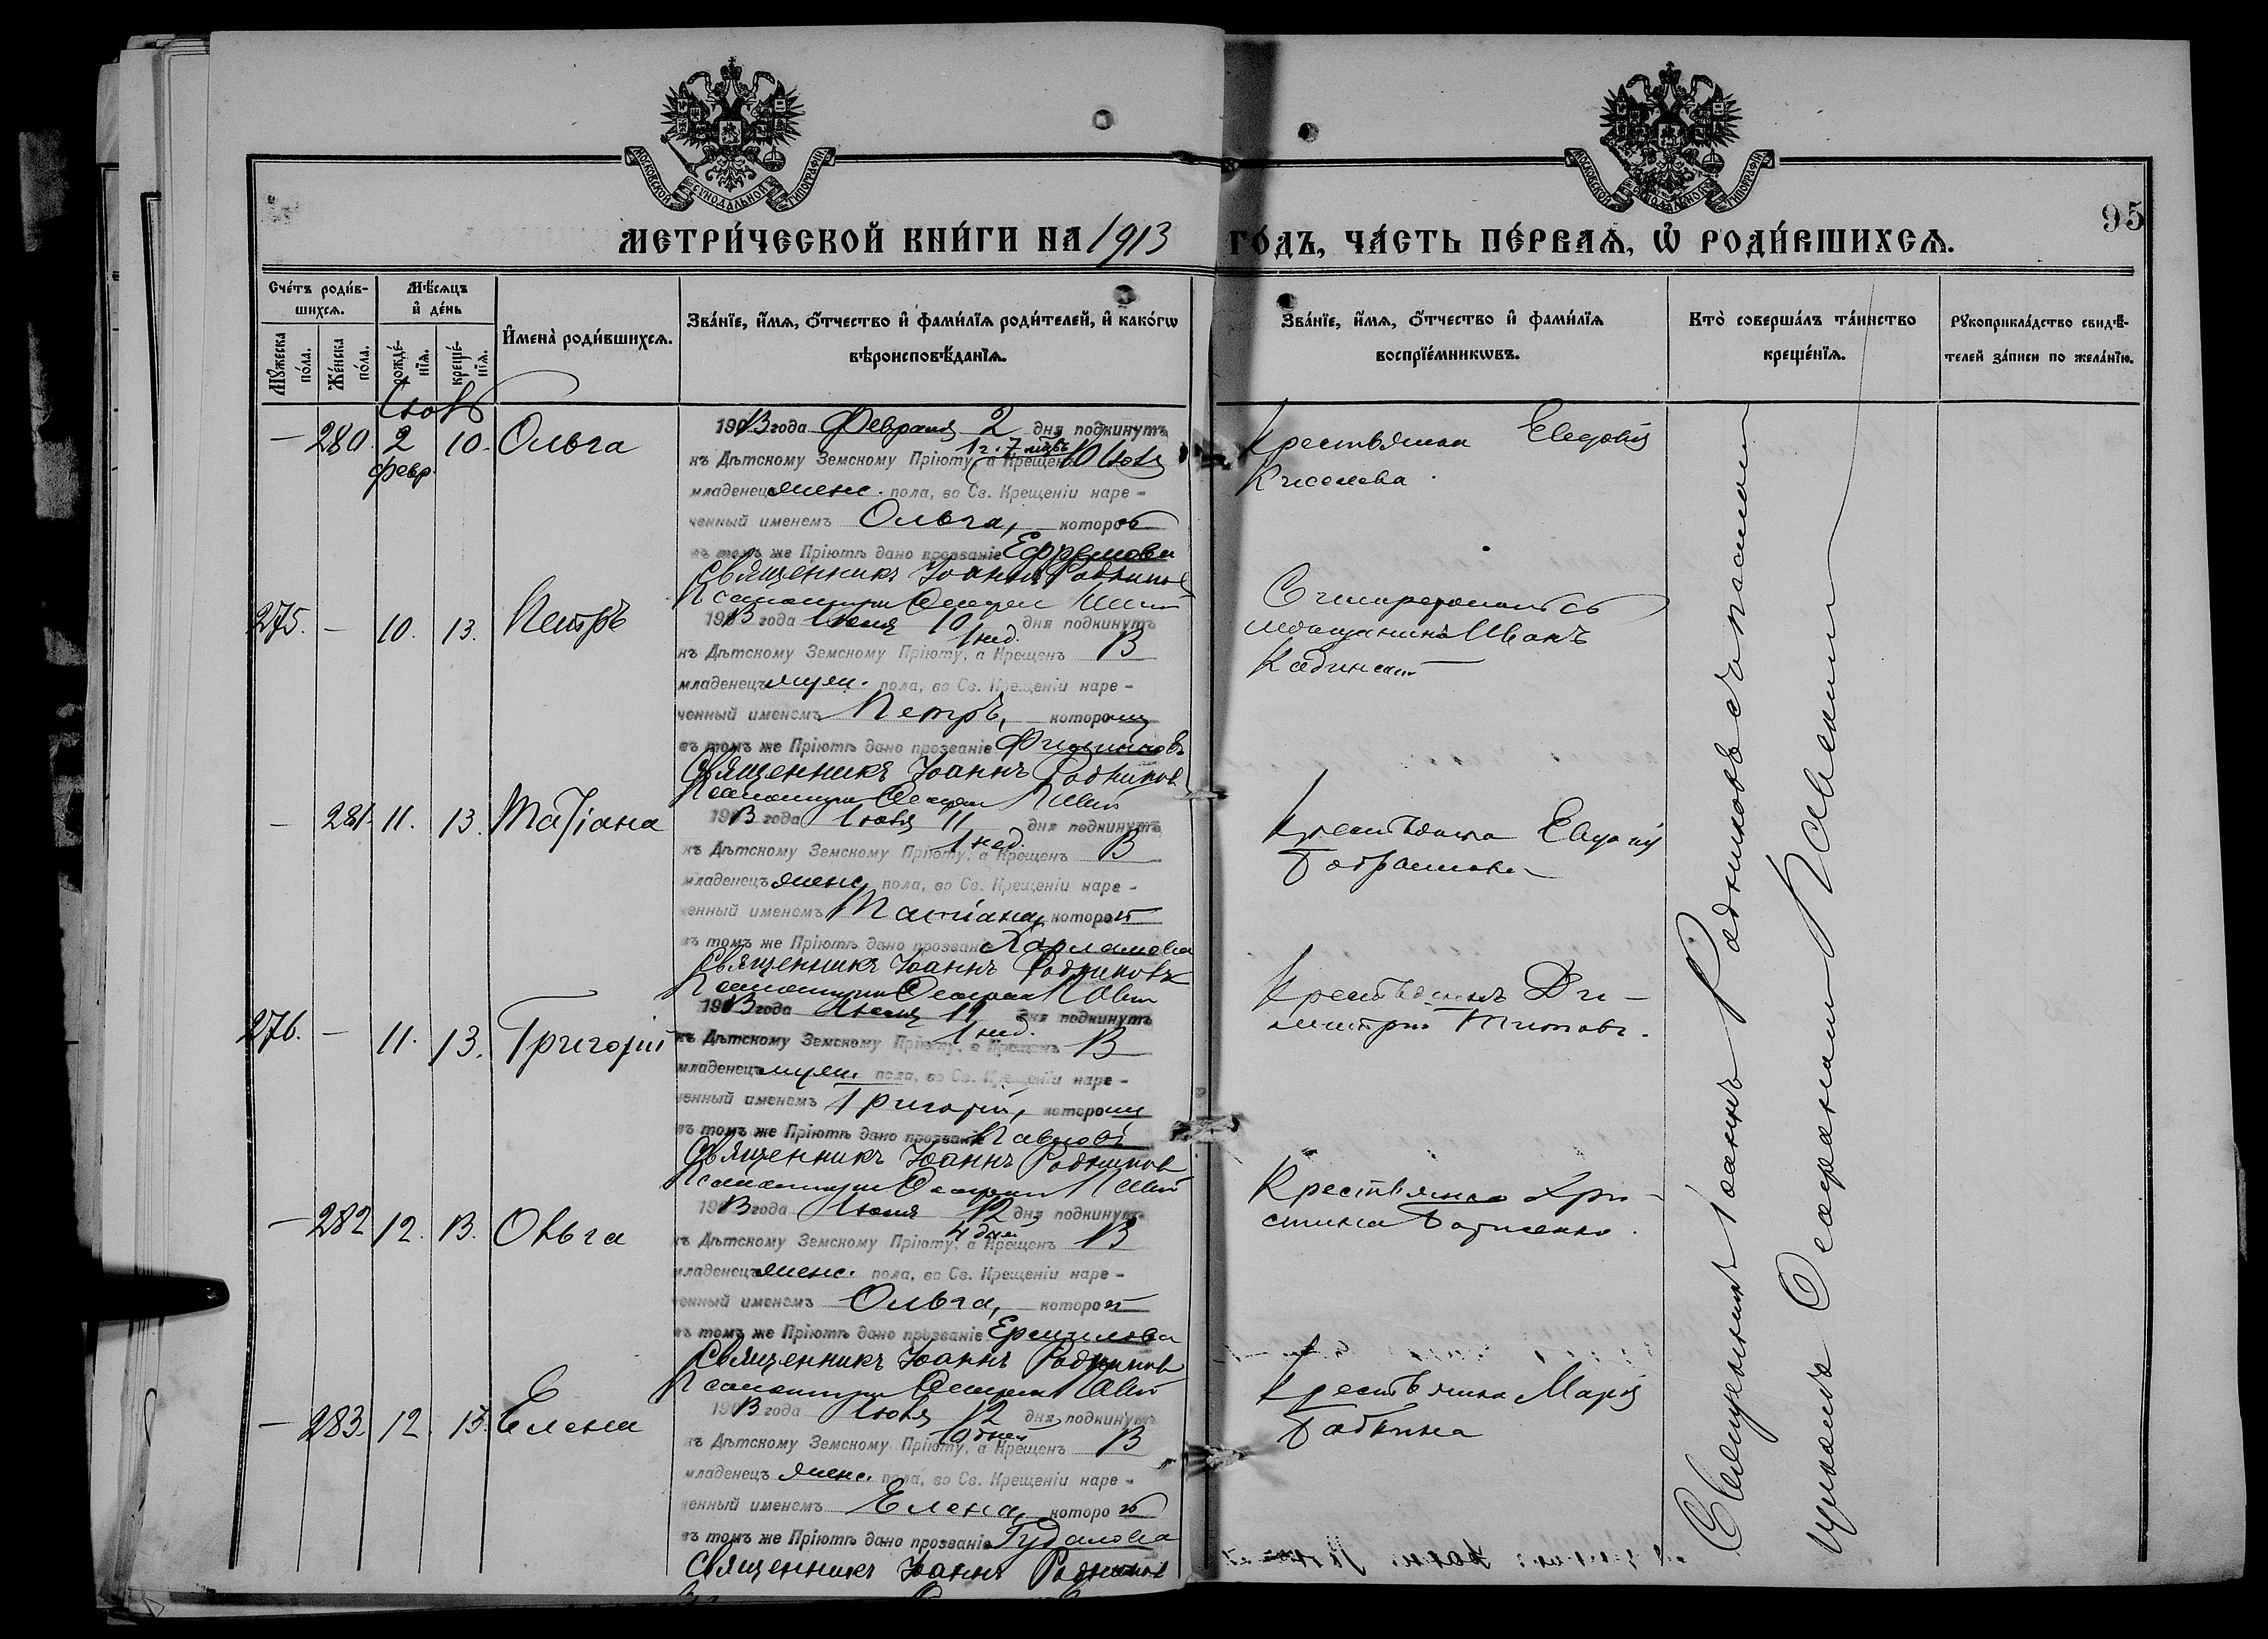 МОСКОВСКОЙ СУНОДАЛЬНОЙ ТИПОГРАФІИ
МОСКОВСКОЙ СУНОДАЛЬНОЙ ТИПОГРАФІИ
95
МЕТРИ́ЧЕСКОЙ КНИ́ГИ НА 1913 ГО́ДЪ, ЧА́СТЬ ПЕ́РВАѦ, Ѽ РОДИ́ВШИХСѦ.
Сче́тъ роди́в-
шихсѧ.
Мꙋжеска по́ла.
Же́нска по́ла.
Мѣ́сѧцъ
и҆ де́нь
рожде́-
нїѧ.
креще́-
нїѧ.
И҆мена̀ роди́вшихсѧ.
Зва́нїе, и҆́мѧ, ѻ҆́тчество и҆ фами́лїѧ роди́телей, и҆ како́гѡ
вѣроисповѣ́данїѧ.
Зва́нїе, и҆́мѧ, ѻ҆́тчество и҆ фами́лїѧ
воспрїе́мникѡвъ.
Кто̀ соверша́лъ та́инство
креще́нїѧ.
Рꙋкоприкла́дство свидѣ́-
телей за́писи по жела́нїю.
— 280. 2 февр. 10. Ольга
1913 года Февраля 2 дня подкинутъ
1 г. 7 мѣс.
къ Дѣтскому Земскому Пріюту, а Крещенъ 10 Іюля
младенецъ женс. пола, во Св. Крещеніи наре-
ченный именемъ Ольга, которой
въ томъ же Пріютѣ дано прозваніе Ефремова
Священникъ Іоаннъ Родников
Крестьянка Евдокія
Киселева.
275. — 10. 13. Петръ
1913 года Іюля 10 дня подкинутъ
1 нед.
къ Дѣтскому Земскому Пріюту, а Крещенъ 13
младенецъ муж. пола, во Св. Крещеніи наре-
ченный именемъ Петръ, которому
въ томъ же Пріютѣ дано прозваніе
Священникъ Іоаннъ Родников
мѣщанинъ Иванъ
— 281. 11. 13. Татіана
1913 года Іюля 11 дня подкинутъ
1 нед.
къ Дѣтскому Земскому Пріюту, а Крещенъ 13
младенецъ женс. пола, во Св. Крещеніи наре-
ченный именемъ Татіана, которой
въ томъ же Пріютѣ дано прозваніе Харламова
Священникъ Іоаннъ Родниковъ
Крестьянка
276. — 11. 13. Григорій
1913 года Іюля 11 дня подкинутъ
1 нед.
къ Дѣтскому Земскому Пріюту, а Крещенъ 13
младенецъ муж. пола, во Св. Крещеніи наре-
ченный именемъ Григорій, которому
въ томъ же Пріютѣ дано прозваніе Павловъ
Священникъ Іоаннъ Родников
Крестьянинъ Ди-
митрій Титовъ.
— 282 12. 13. Ольга
1913 года Іюля 12 дня подкинутъ
4 дня
къ Дѣтскому Земскому Пріюту, а Крещенъ 13
младенецъ женс. пола, во Св. Крещеніи наре-
ченный именемъ Ольга, которой
въ томъ же Пріютѣ дано прозваніе Ермилова
Священникъ Іоаннъ Родников
Крестьянка Хри-
стина
— 283. 12. 13. Елена
1913 года Іюля 12 дня подкинутъ
10 дней
къ Дѣтскому Земскому Пріюту, а Крещенъ 13
младенецъ женс. пола, во Св. Крещеніи наре-
ченный именемъ Елена, которой
въ томъ же Пріютѣ дано прозваніе Гудалова
Священникъ Іоаннъ Родников
Крестьянка Марія
Бабкина
Священникъ Іоаннъ Родниковъ съ псалом-
щикомъ